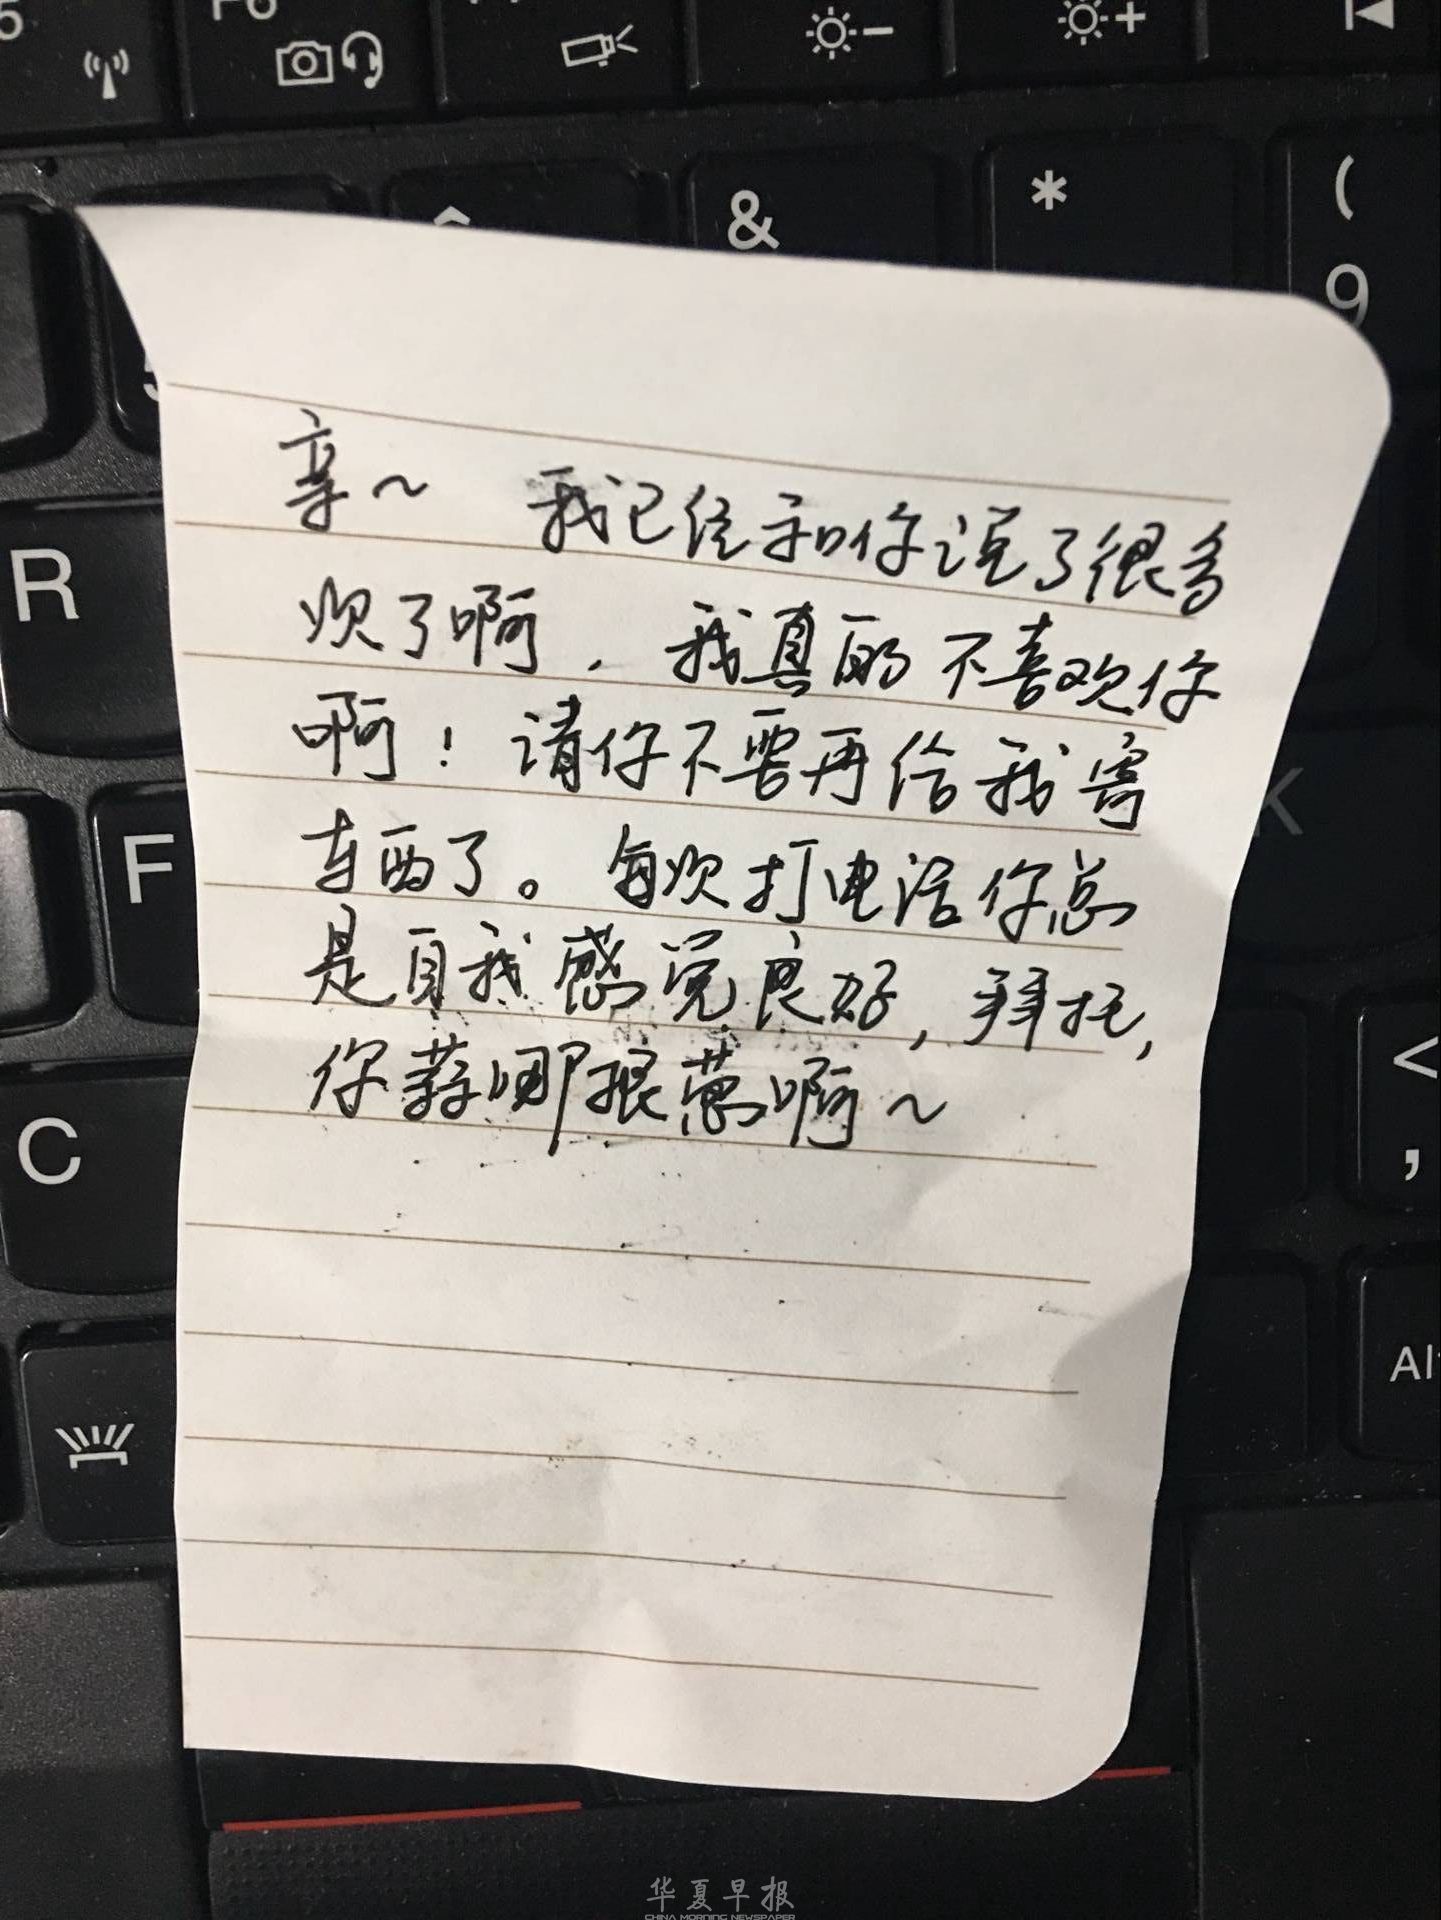 F6
&
*
(
9
R
F
K
C
<
,
Al
亲~ 我已经和你说了很多
次了啊，我真的不喜欢你
啊！请你不要再给我寄
东西了。每次打电话你总
是自我感觉良好，拜托，
你蒜哪根葱啊~
华夏早报
CHINA MORNING NEWSPAPER